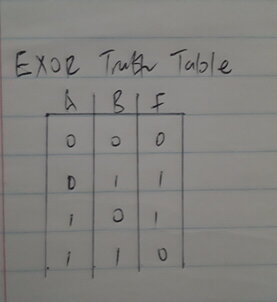 EXOR Truth Table
A | B | F
0 | 0 | 0
0 | 1 | 1
1 | 0 | 1
1 | 1 | 0